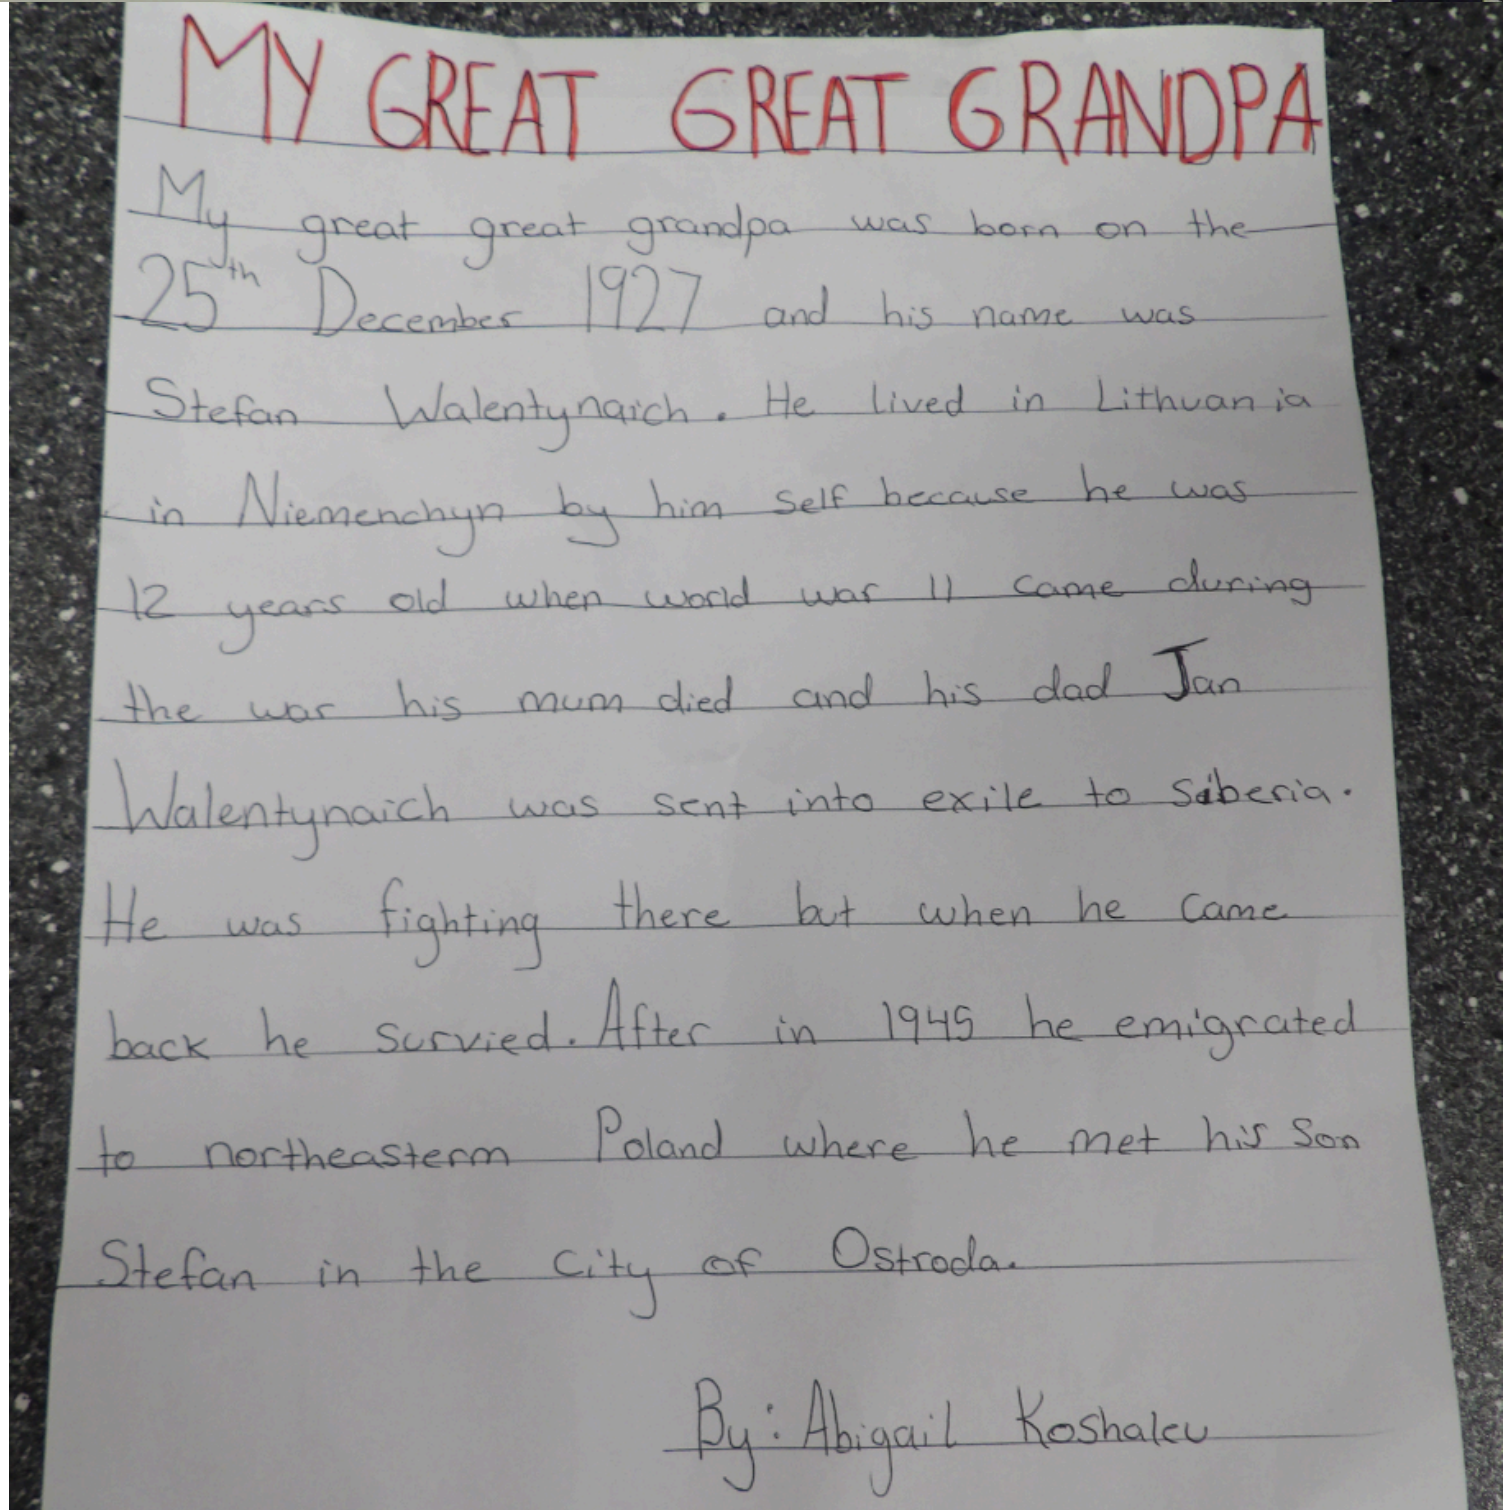 MY GREAT GREAT GRANDPA
My great great grandpa was born on the
25th December 1927 and his name was
Stefan Walentynaich. He lived in Lithuania
in Niemenchyn by him self because he was
12 years old when world war 11 came during
the war his mum died and his dad Jan
Walentynaich was sent into exile to Siberia.
He was fighting there but when he came
back he survied. After in 1945 he emigrated
to northeasterm Poland where he met his son
Stefan in the city of Ostroda.
By: Abigail Koshalcu